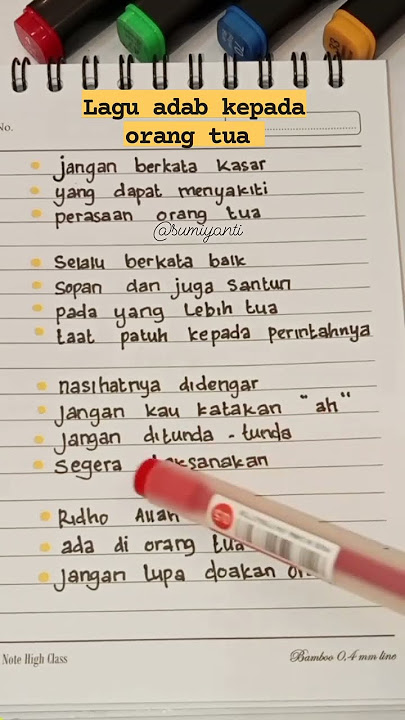 Lagu adab kepada
orang tua
No.
jangan berkata kasar
yang dapat menyakiti
perasaan orang tua
@sumiyanti
Selalu berkata baik
Sopan dan juga santun
pada yang lebih tua
taat patuh kepada perintahnya
nasihatnya didengar
jangan kau katakan "ah"
jangan ditunda-tunda
segera
Ridho Allah
ada di orang tua
jangan lupa doakan
Note High Class
Bamboo 0,4 mm line